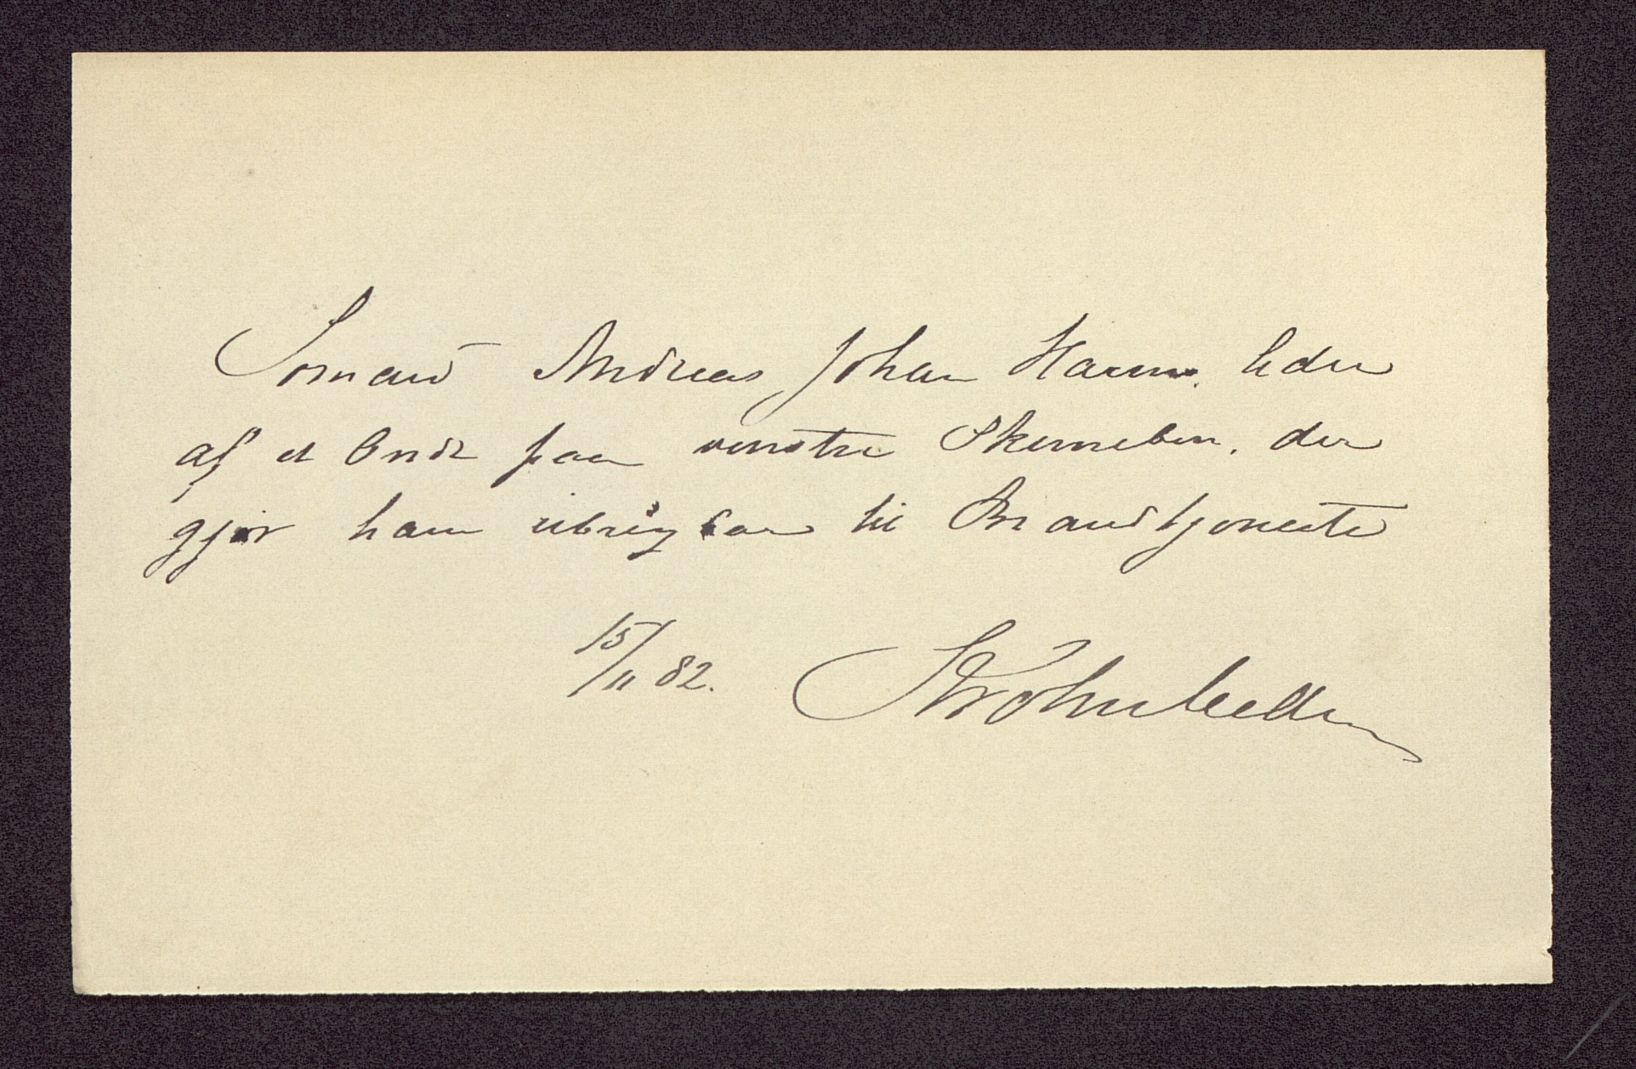 Sømand Andreas Johan Hansen lider
af et Onde paa venstre Skinneben, der
gjør ham ubrugbar til Brandtjeneste
15/11 82.